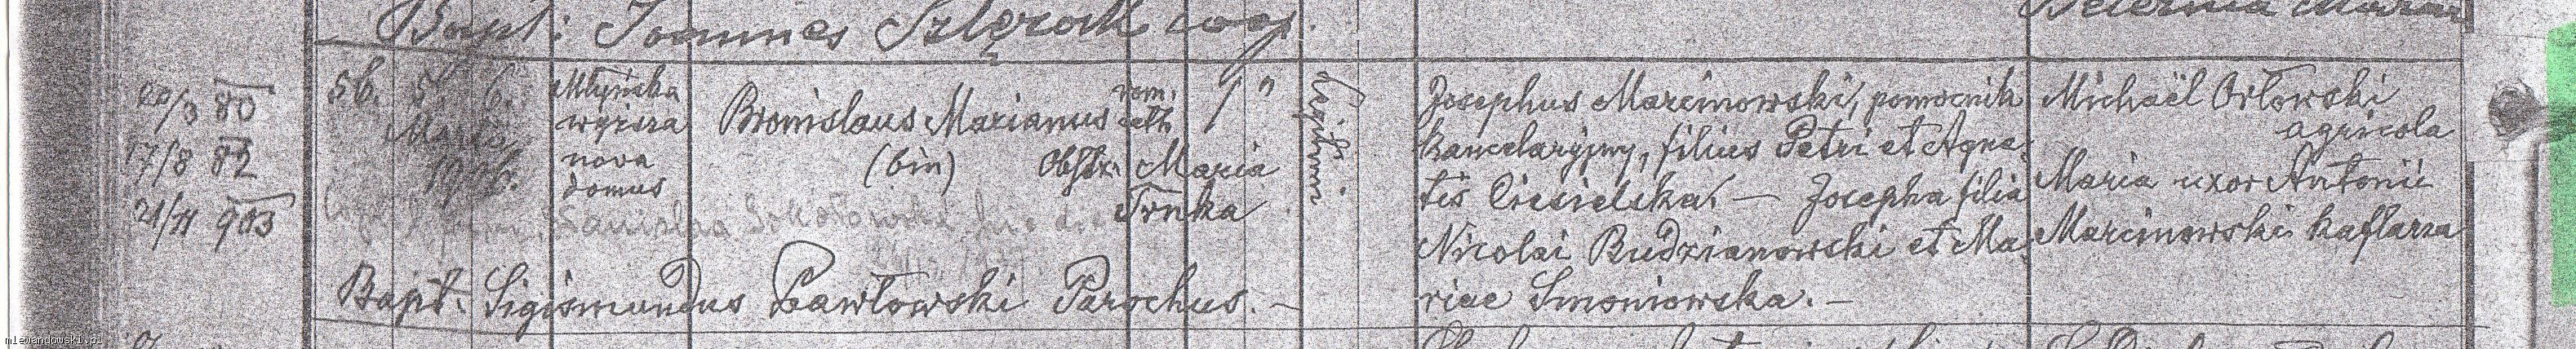 Bapt: Joannes coop.
20/3 80
17/8 82
21/11 903
56. 5. 6.
Martii
1906.
Młyńska
wyższa
nova
domus
Bronislaus Marianus
(bin)
rom.
cath.
1"
Obstr. Maria
Trnka
Legitim.
Josephus Marcinowski, pomocnik
kancelaryjny, filius Petri et Agne-
tis Ciesielska. — Josepha filia
Nicolai Budzianowski et Ma-
riae Smoniowska. —
Michaël Orłowski
agricola
Maria uxor Antonii
Marcinowski kaflarza
Stanisława Sokołowska
Bapt. Sigismundus Pawłowski Parochus. —
mlewandowski.pl